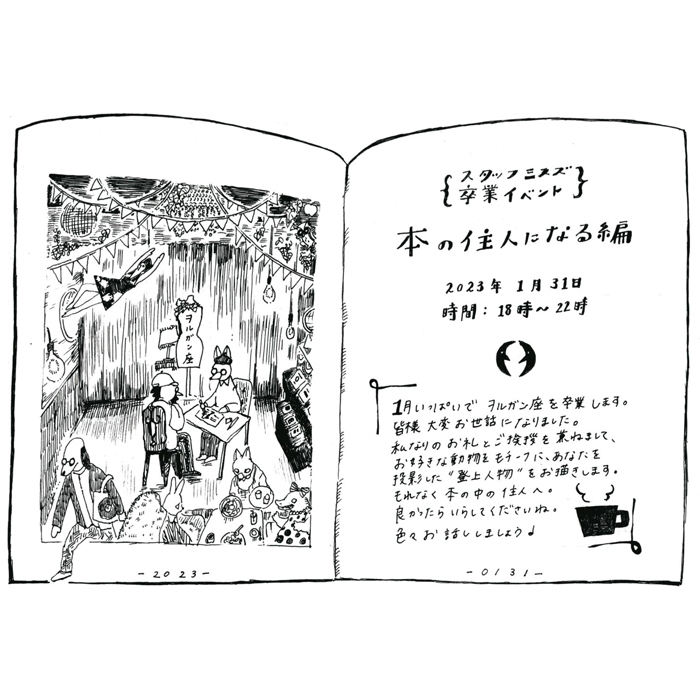 ヲルガン座
-2023-
スタッフミスズ
卒業イベント
本の住人になる編
2023年 1月31日
時間：18時〜22時
1月いっぱいで ヲルガン座を卒業します。
皆様大変お世話になりました。
私なりのお礼とご挨拶を兼ねまして、
お好きな動物をモチーフに、あなたを
投影した"登上人物"をお描きします。
もれなく本の中の住人へ。
良かったらいらしてくださいね。
色々お話ししましょう♩
-0131-